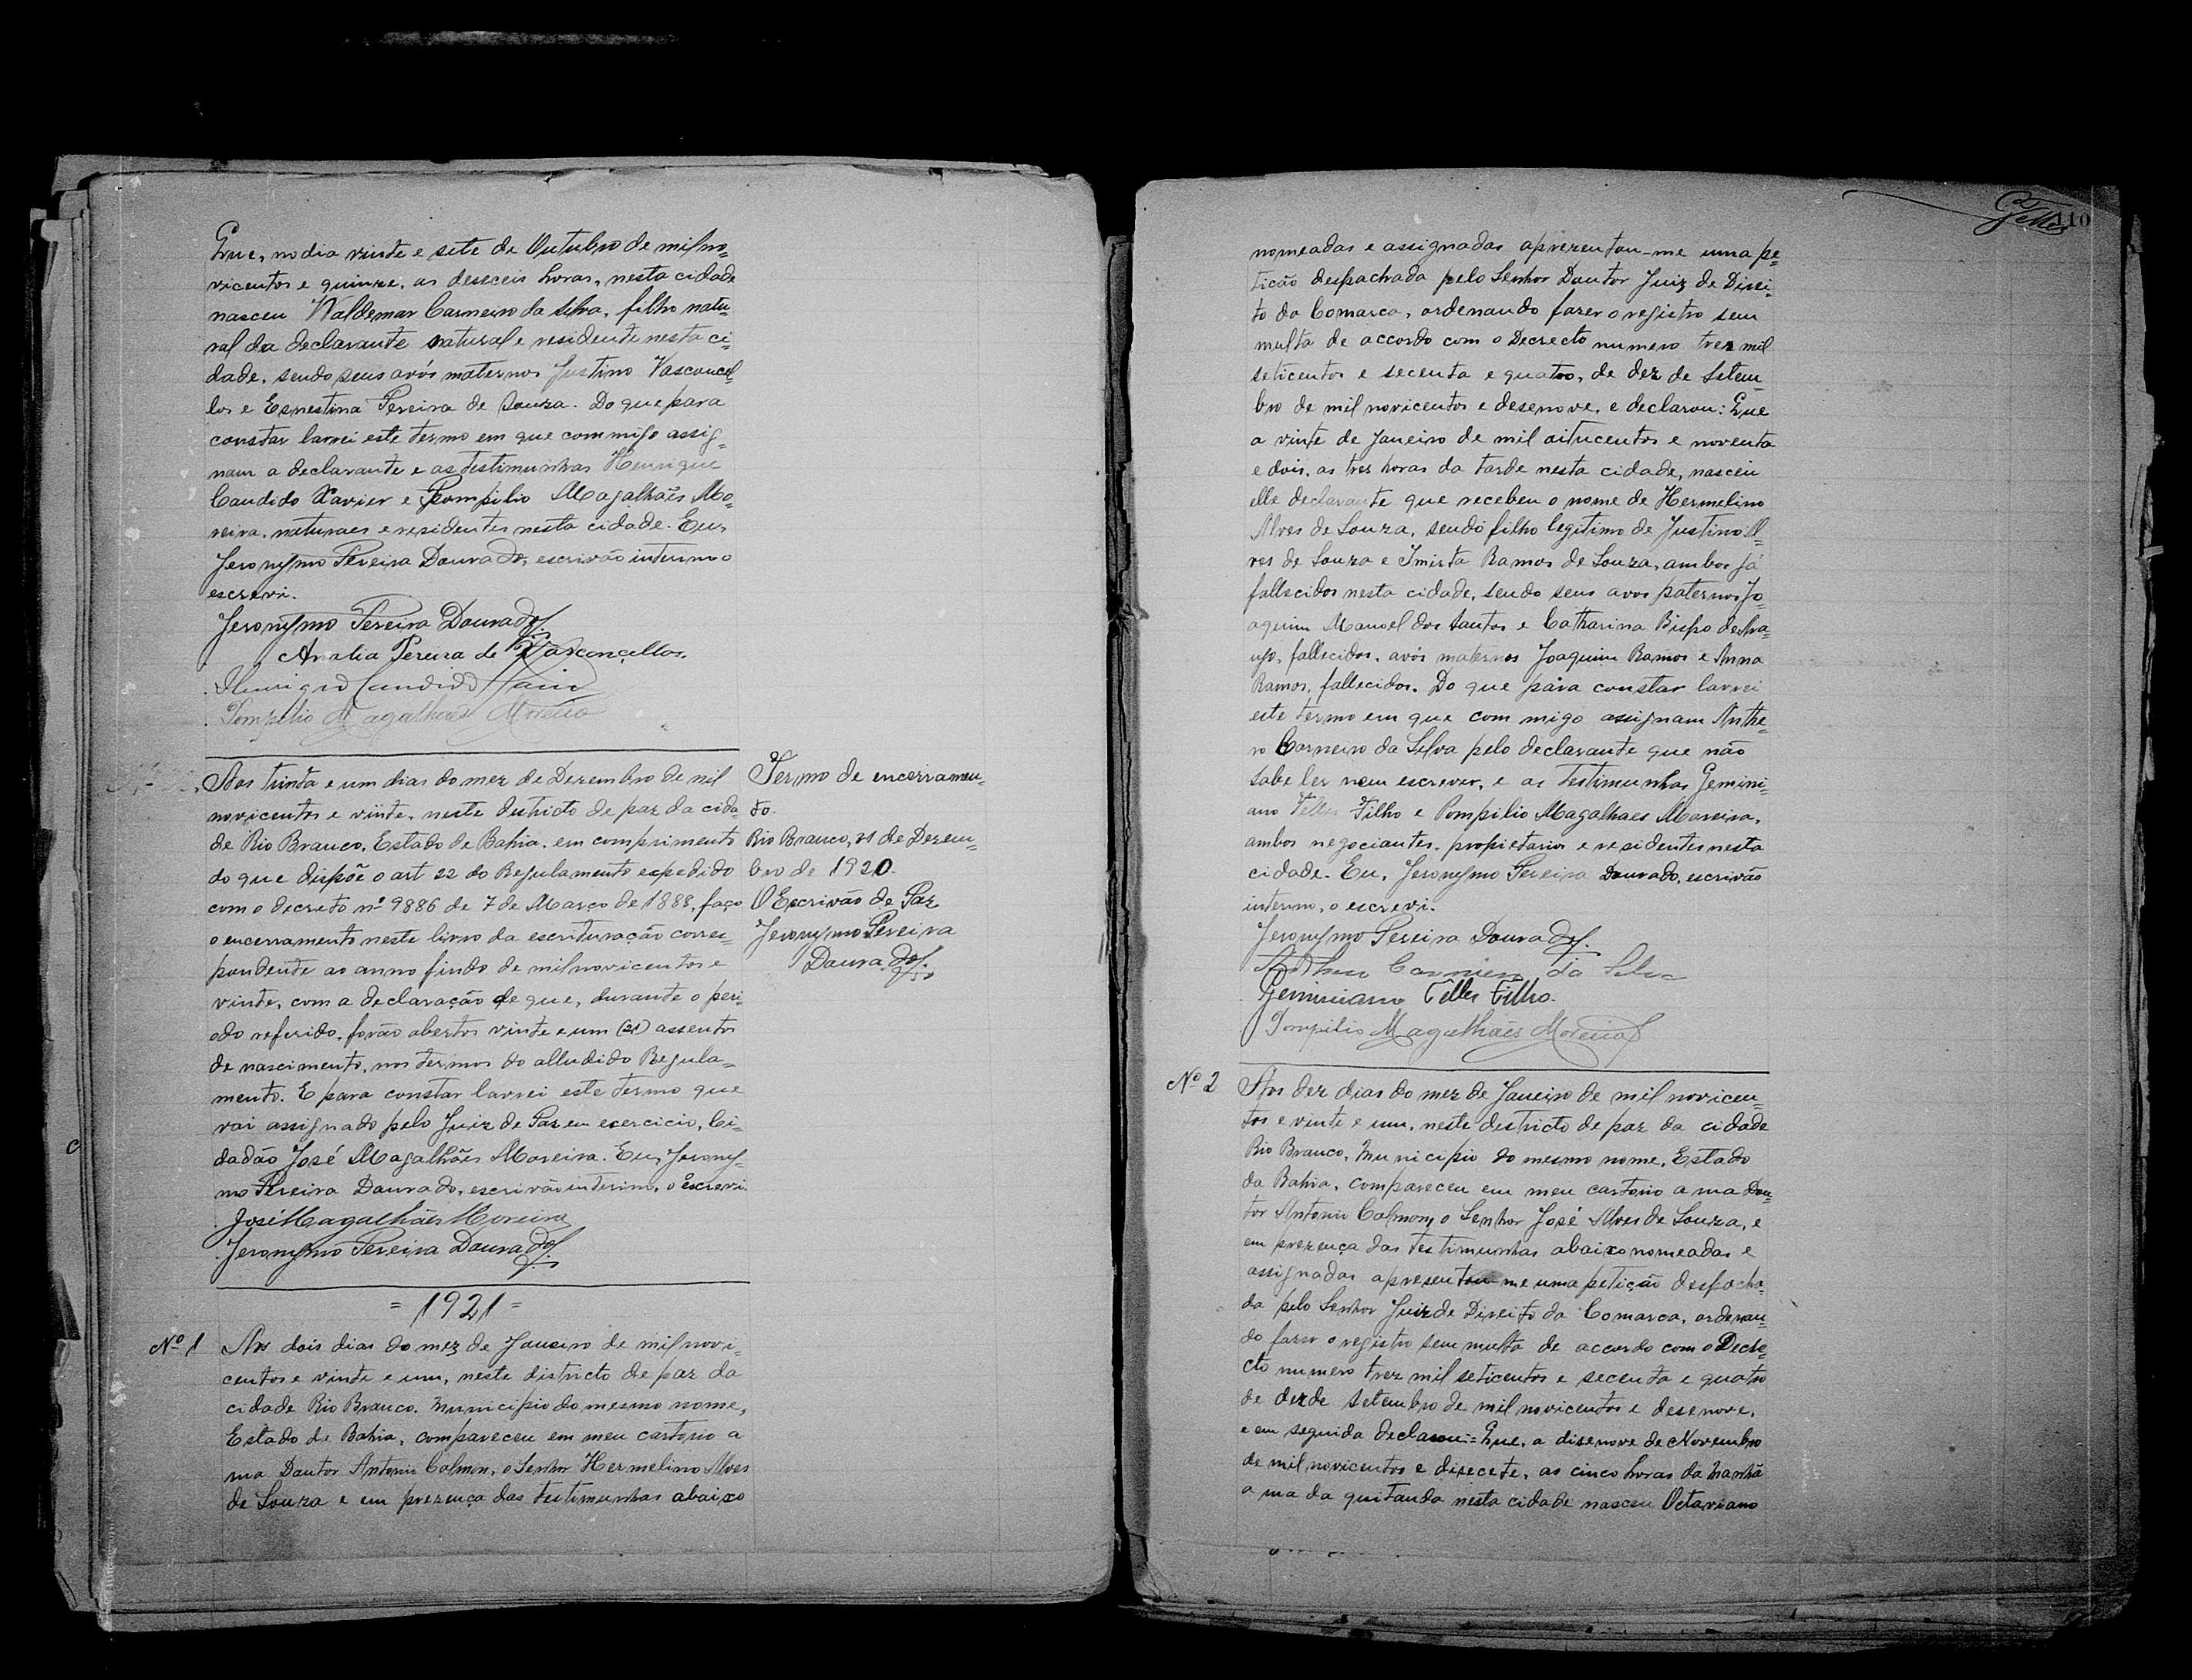 Que, no dia vinte e sete de Outubro de mil no-
vicentos e quinze, as desceis horas, nesta cidade
nasceu Waldemar Carneiro da Silva, filho natu-
ral da declarante natural e residente nesta ci-
dade, sendo seus avós maternos Justino Vasconcel-
los e Ernestina Pereira de Souza. Do que para
constar lavrei este termo em que commigo assig-
nam a declarante e as testimunhas Henrique
Candido Xavier e Pompilio Magalhães Mo-
reira, naturaes e residentes nesta cidade. Eu,
Jeronymo Pereira Dourado, escrivão interino o
escrevi.
Jeronymo Pereira Dourado.
Analia Pereira de Vasconcellos.
Henrique Candido
Pompilio Magalhães Moreira
Aos trinta e um dias do mez de Dezembro de mil
novicentos e vinte, neste districto de paz da cida-
de Rio Branco, Estado de Bahia, em comprimento
do que dispõe o art 22 do Regulamento expedido
com o decreto nº 9886 de 7 de Março de 1888, faço
o encerramento neste livro da escrituração corres-
pondente ao anno findo de mil novicentos e
vinte, com a declaração de que, durante o peri-
odo referido, forão abertos vinte e um (21) assentos
de nascimento, nos termos do alludido Regula-
mento. E para constar lavrei este termo que
vai assignado pelo Juiz de Paz em exercicio, Ci-
dadão José Magalhães Moreira. Eu, Jerony-
mo Pereira Dourado, escrivão interino, o Escrevi.
José Magalhães Moreira
Jeronymo Pereira Dourado.
Termo de encerramen-
to.
Rio Branco, 31 de Dezem-
bro de 1920.
O Escrivão de Paz
Jeronymo Pereira
Dourado.
= 1921 =
Nº 1
Aos dois dias do mez de Janeiro de mil novi-
centos e vinte e um, neste districto de paz da
cidade Rio Branco, municipio do mesmo nome,
Estado de Bahia, compareceu em meu cartorio a
rua Doutor Antonio Calmon, o Senhor Hermelino Alves
de Souza e em prezença das testimunhas abaixo
Telles 110
nomeadas e assignadas aprezentou-me uma pe-
tição despachada pelo Senhor Doutor Juiz de Direi-
to da Comarca, ordenando fazer o registro sem
multa de accordo com o Decrecto numero trez mil
seticentos e secenta e quatro, de dez de Setem-
bro de mil novicentos e desenove, e declarou: Que
a vinte de Janeiro de mil oitucentos e noventa
e dois, as tres horas da tarde nesta cidade, nasceu
elle declarante que recebeu o nome de Hermelino
Alves de Souza, sendo filho legitimo de Justino Al-
ves de Souza e Ramos de Souza, ambos já
fallecidos nesta cidade, sendo seus avos paternos Jo-
aquim Manoel dos Santos e Catharina Bispo de Ara-
ujo, fallecidos, avós maternos Joaquim Ramos e Anna
Ramos, fallecidos. Do que para constar lavrei
este termo em que com migo assignam Anthe-
ro Carneiro da Silva pelo declarante que não
sabe ler nem escrever, e as testimunhas Gemini-
ano Telles Filho e Pompilio Magalhaes Moreira,
ambos negociantes, propietarios e residentes nesta
cidade. Eu, Jeronymo Pereira Dourado, escrivão
interino, o escrevi.
Jeronymo Pereira Dourado.
Anthero Carneiro da Silva
Geminiano Telles Filho.
Pompilio Magalhães Moreira
Nº 2
Aos dez dias do mez de Janeiro de mil novicen-
tos e vinte e um, neste districto de paz da cidade
Rio Branco, Municipio do mesmo nome, Estado
da Bahia, compareceu em meu cartorio a rua Dou-
tor Antonio Calmon, o Senhor José Alves de Souza, e
em prezença das testimunhas abaixo nomeadas e
assignadas apresentou-me uma petição despacha-
da pelo Senhor Juiz de Direito da Comarca, ordenan-
do fazer o registro sem multa de accordo com o Decre-
cto numero trez mil seticentos e secenta e quatro
de dez de Setembro de mil novicentos e desenove,
e em seguida declarou:= Que, a disenove de Novembro
de mil novicentos e disecete, as cinco horas da manhã
a rua da quitanda nesta cidade nasceu Octaviano